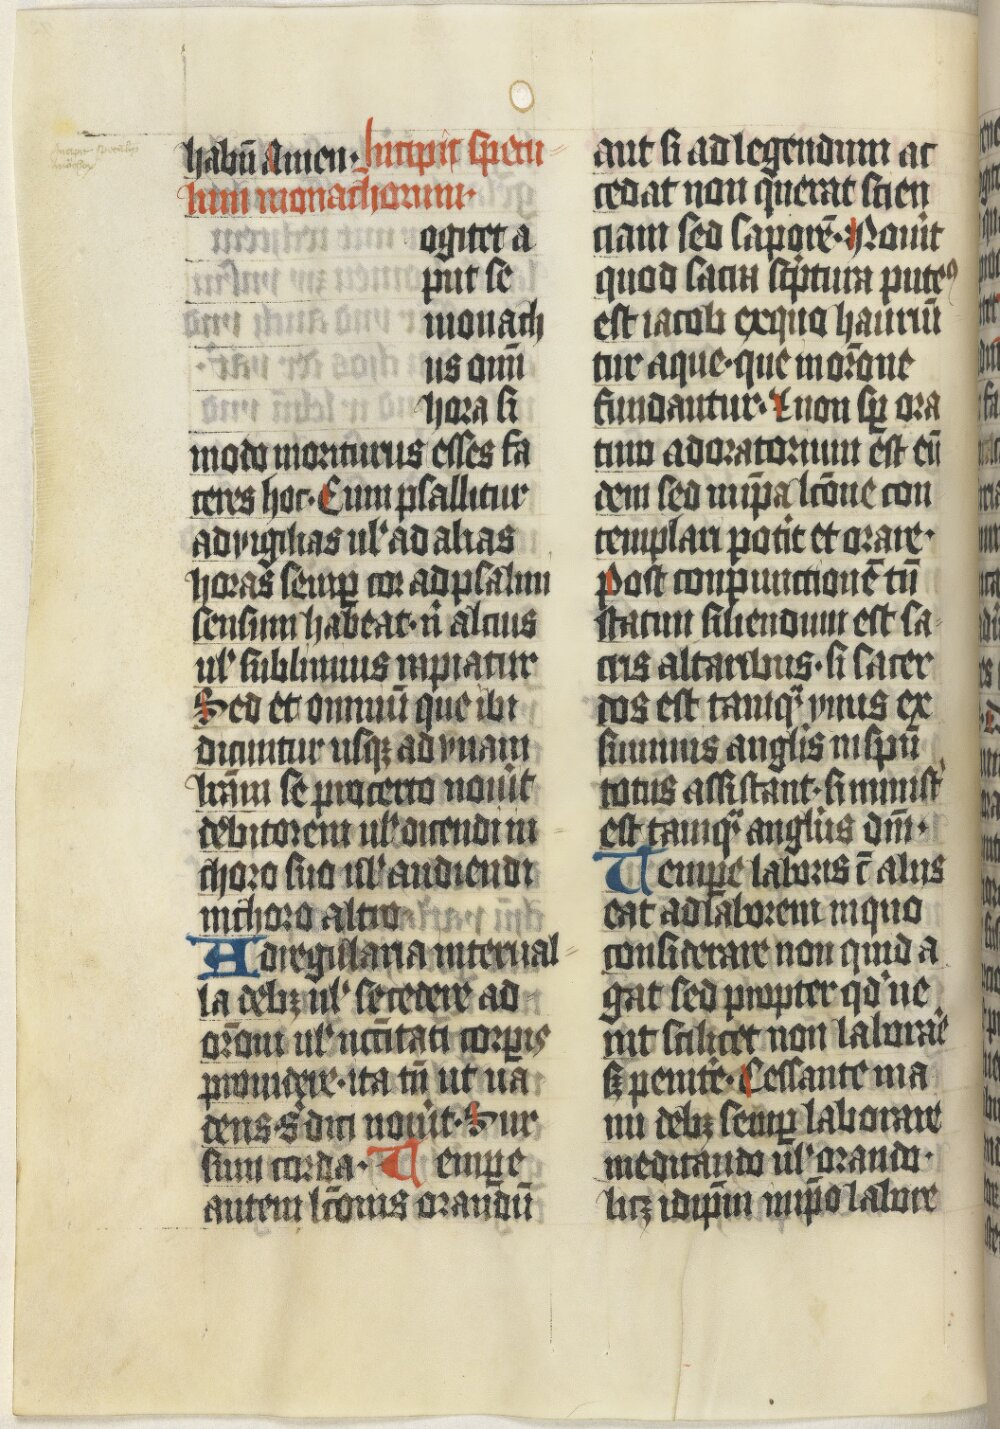 habūt Amen. Incipit specu-
lum monachorum.
ogitet a
put se
monach
us omī
hora si
modo moriturus esses fa
ceres hoc. Cum psallitur
ad vigilias ul' ad alias
horas semꝑ cor ad psalmi
sensum habeat. n̄ alcius
ul' sublimius rapiatur
Sed et omniū que ibi
dicuntur usqꝫ ad vnam
lrām se procerto nouit
debitorem ul' dicendi in
choro suo ul' audiendi
in choro altro
Ad regularia interual-
la debꝫ ul' secedere ad
orōm ul' nccītati corꝑis
prouidere. ita tn̄ ut ua
dens. s' dici nouit. Sur
sum corda. Temꝑe
autem lc̄onis orandū
aut si ad legendum ac
cedat non querat scien
ciam sed saporē. Nouit
quod sacra sc̄ptura puteꝰ
est iacob ex quo hauriū
tur aque. que in orōne
fundantur. Et non sꝑ ora
turo ad oratorium est eū
dem sed in ip̄a lc̄one con
templari potit et orare.
Post conpunctionē tū
statim siliendum est sa-
cris altaribus. si sacer
dos est tamqᵃ vnus ex
summis anglis in sp̄ū
totus assistant. si minist'
est tamqᵃ anglus dn̄i.
Temꝑe laboris c̄ aliis
eat ad laborem in quo
considerare non quid a
gat sed propter qd' ue
nit scilicet non laborare
sꝫ penit'e. Cessante ma
nu debꝫ semꝑ laborare
meditando ul' orando.
licꝫ id ip̄m in ip̄o labore